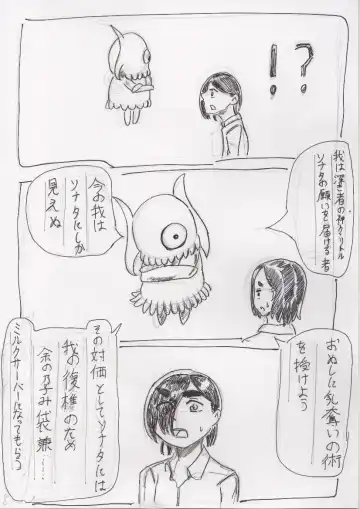 !?
我は深き者の神クトリトル
ソナタの願いを届ける者
今の我は
ソナタにしか
見えぬ
おぬしに乱奪いの術
を授けよう
その対価としてソナタには
我の復権のため
余の孕み袋兼……
ミルクサーバーになってもらう